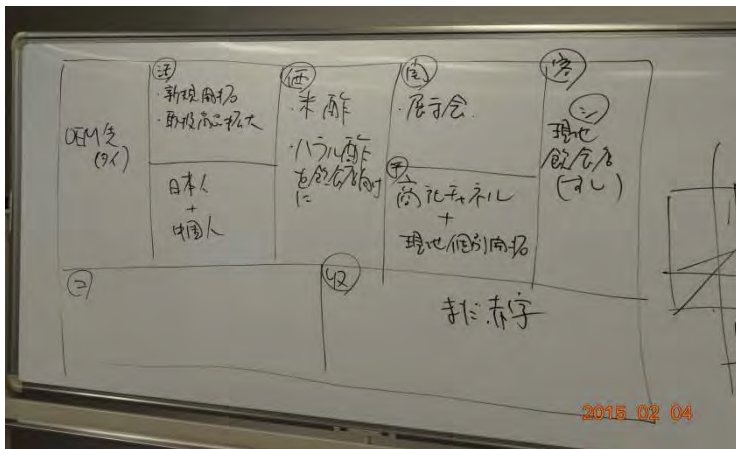 OEM先
(タイ)
活
・新規開拓
・取扱商品拡大
日本人
+
中国人
価
・米酢
・ハラル酢
を飲食店向け
に
関
・展示会
チ
商社チャネル
+
現地個別開拓
客
シ
現地
飲食店
(すし)
コ
収
まだ赤字
2015 02 04